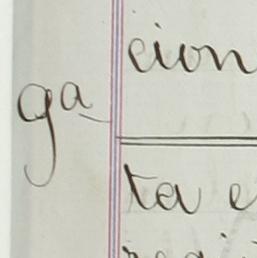 cion
ga
ta e